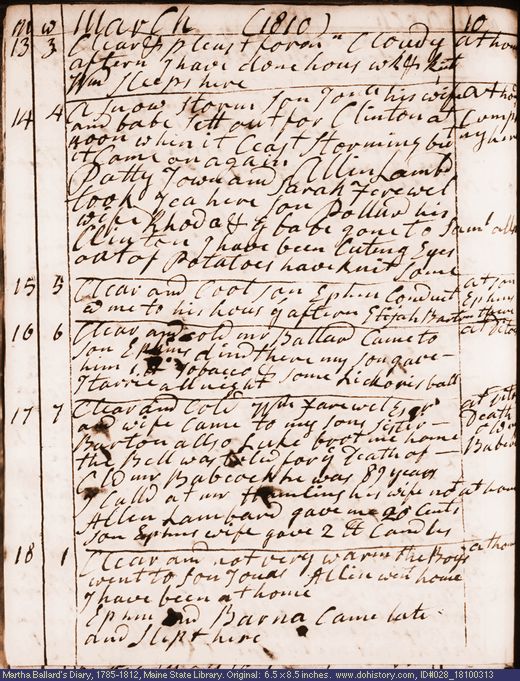 m w March (1810) 10
13 3 Clear & pleast foren n Cloudy at home
aftern I have done hous wk & knit
Wm sleeps here
14 4 A snow storm son Jona his wife at home
and babe sett out for Clinton at Comp
noon when it Ceast storming but ny here
it Came on again
Patty Town and Allin Lamb
took Tea here Sarah Farewel
wife Rhoda & babe son Pollard his
Clinton gone to Saml
I have been Cuting Eyes
out of Potatoes have knit some
15 5 Clear and Cool son Ephm Conduct at son
ed me to his hous y aftern Elijah Barton there Ephms
16 6 Clear and cold mr Ballard Came to at ditto
son Ephms dind there my son gave
him 1 lb Tobacco & some hickoris ball
Tarrie all night
17 7 Clear and Cold Wm Farewel Esqr at ditto
and wife Came to my sons sister Death
Barton allso Luke boot me home
the Bell was told for y Death of Babcock
Old mr Babcock he was 89 years
I calld at mr Hamlins his wife not at home
Allen Lambard gave me 20 Cents
son Ephms wife gave 2 lb Candles
18 1 Clear and not very warm the Boys at home
went to son Jonas Allin went home
I have been at home
Ephm and Barna Came late
and slept here
Martha Ballard's Diary, 1785-1812, Maine State Library. Original: 6.5 x 8.5 inches. www.dohistory.com, ID#028_18100313